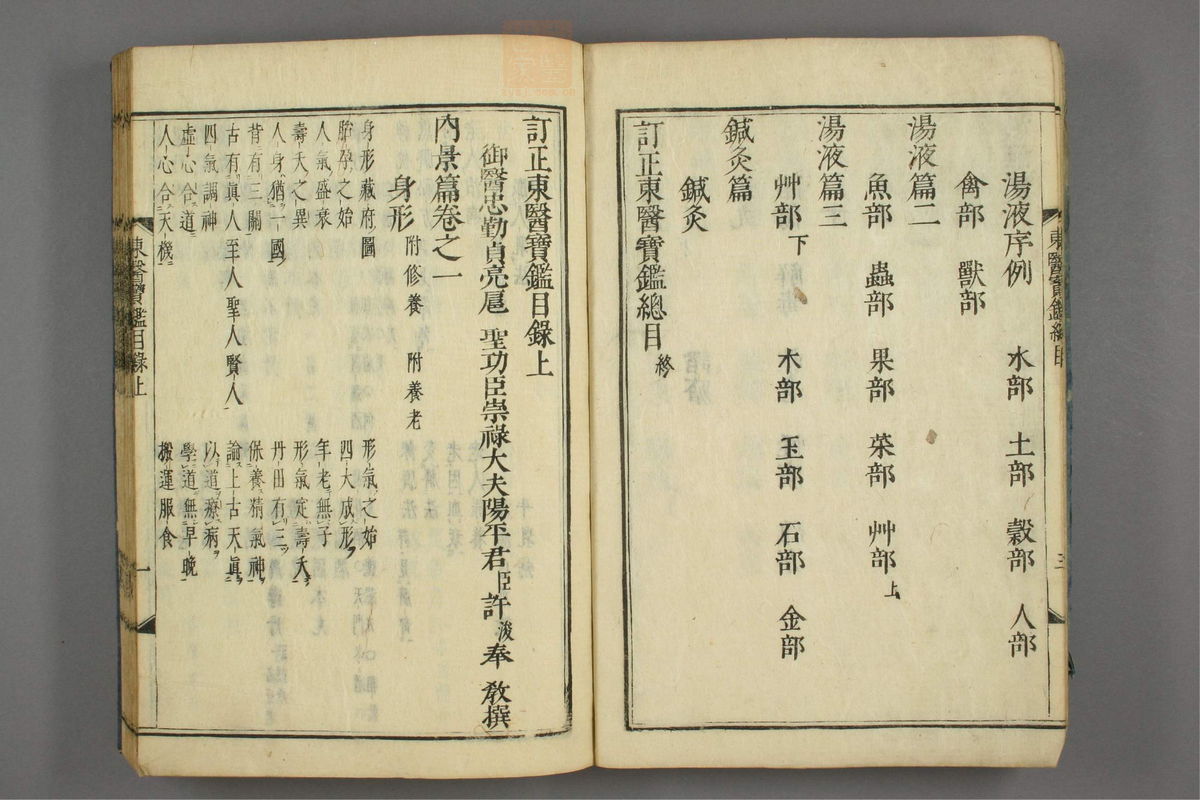 湯液序例　水部　土部　穀部　人部
禽部　獸部
湯液篇二
魚部　蟲部　果部　菜部　艸部上
湯液篇三
艸部下　木部　玉部　石部　金部
鍼灸篇
鍼灸
訂正東醫寶鑑總目終
東醫寶鑑總目
三
訂正東醫寶鑑目錄上
御醫忠勤貞亮扈聖功臣崇祿大夫陽平君臣許浚奉教撰
內景篇卷之一
身形附修養　附養老
身形藏府圖　形氣之始
胎孕之始　四大成形
人氣盛衰　年老無子
壽夭之異　形氣定壽夭
人身猶一國　丹田有三
背有三關　保養精氣神
古有眞人至人聖人賢人　論上古天眞
四氣調神　以道療病
虛心合道　學道無早晚
人心合天機　搬運服食
東醫寶鑑目錄上
一